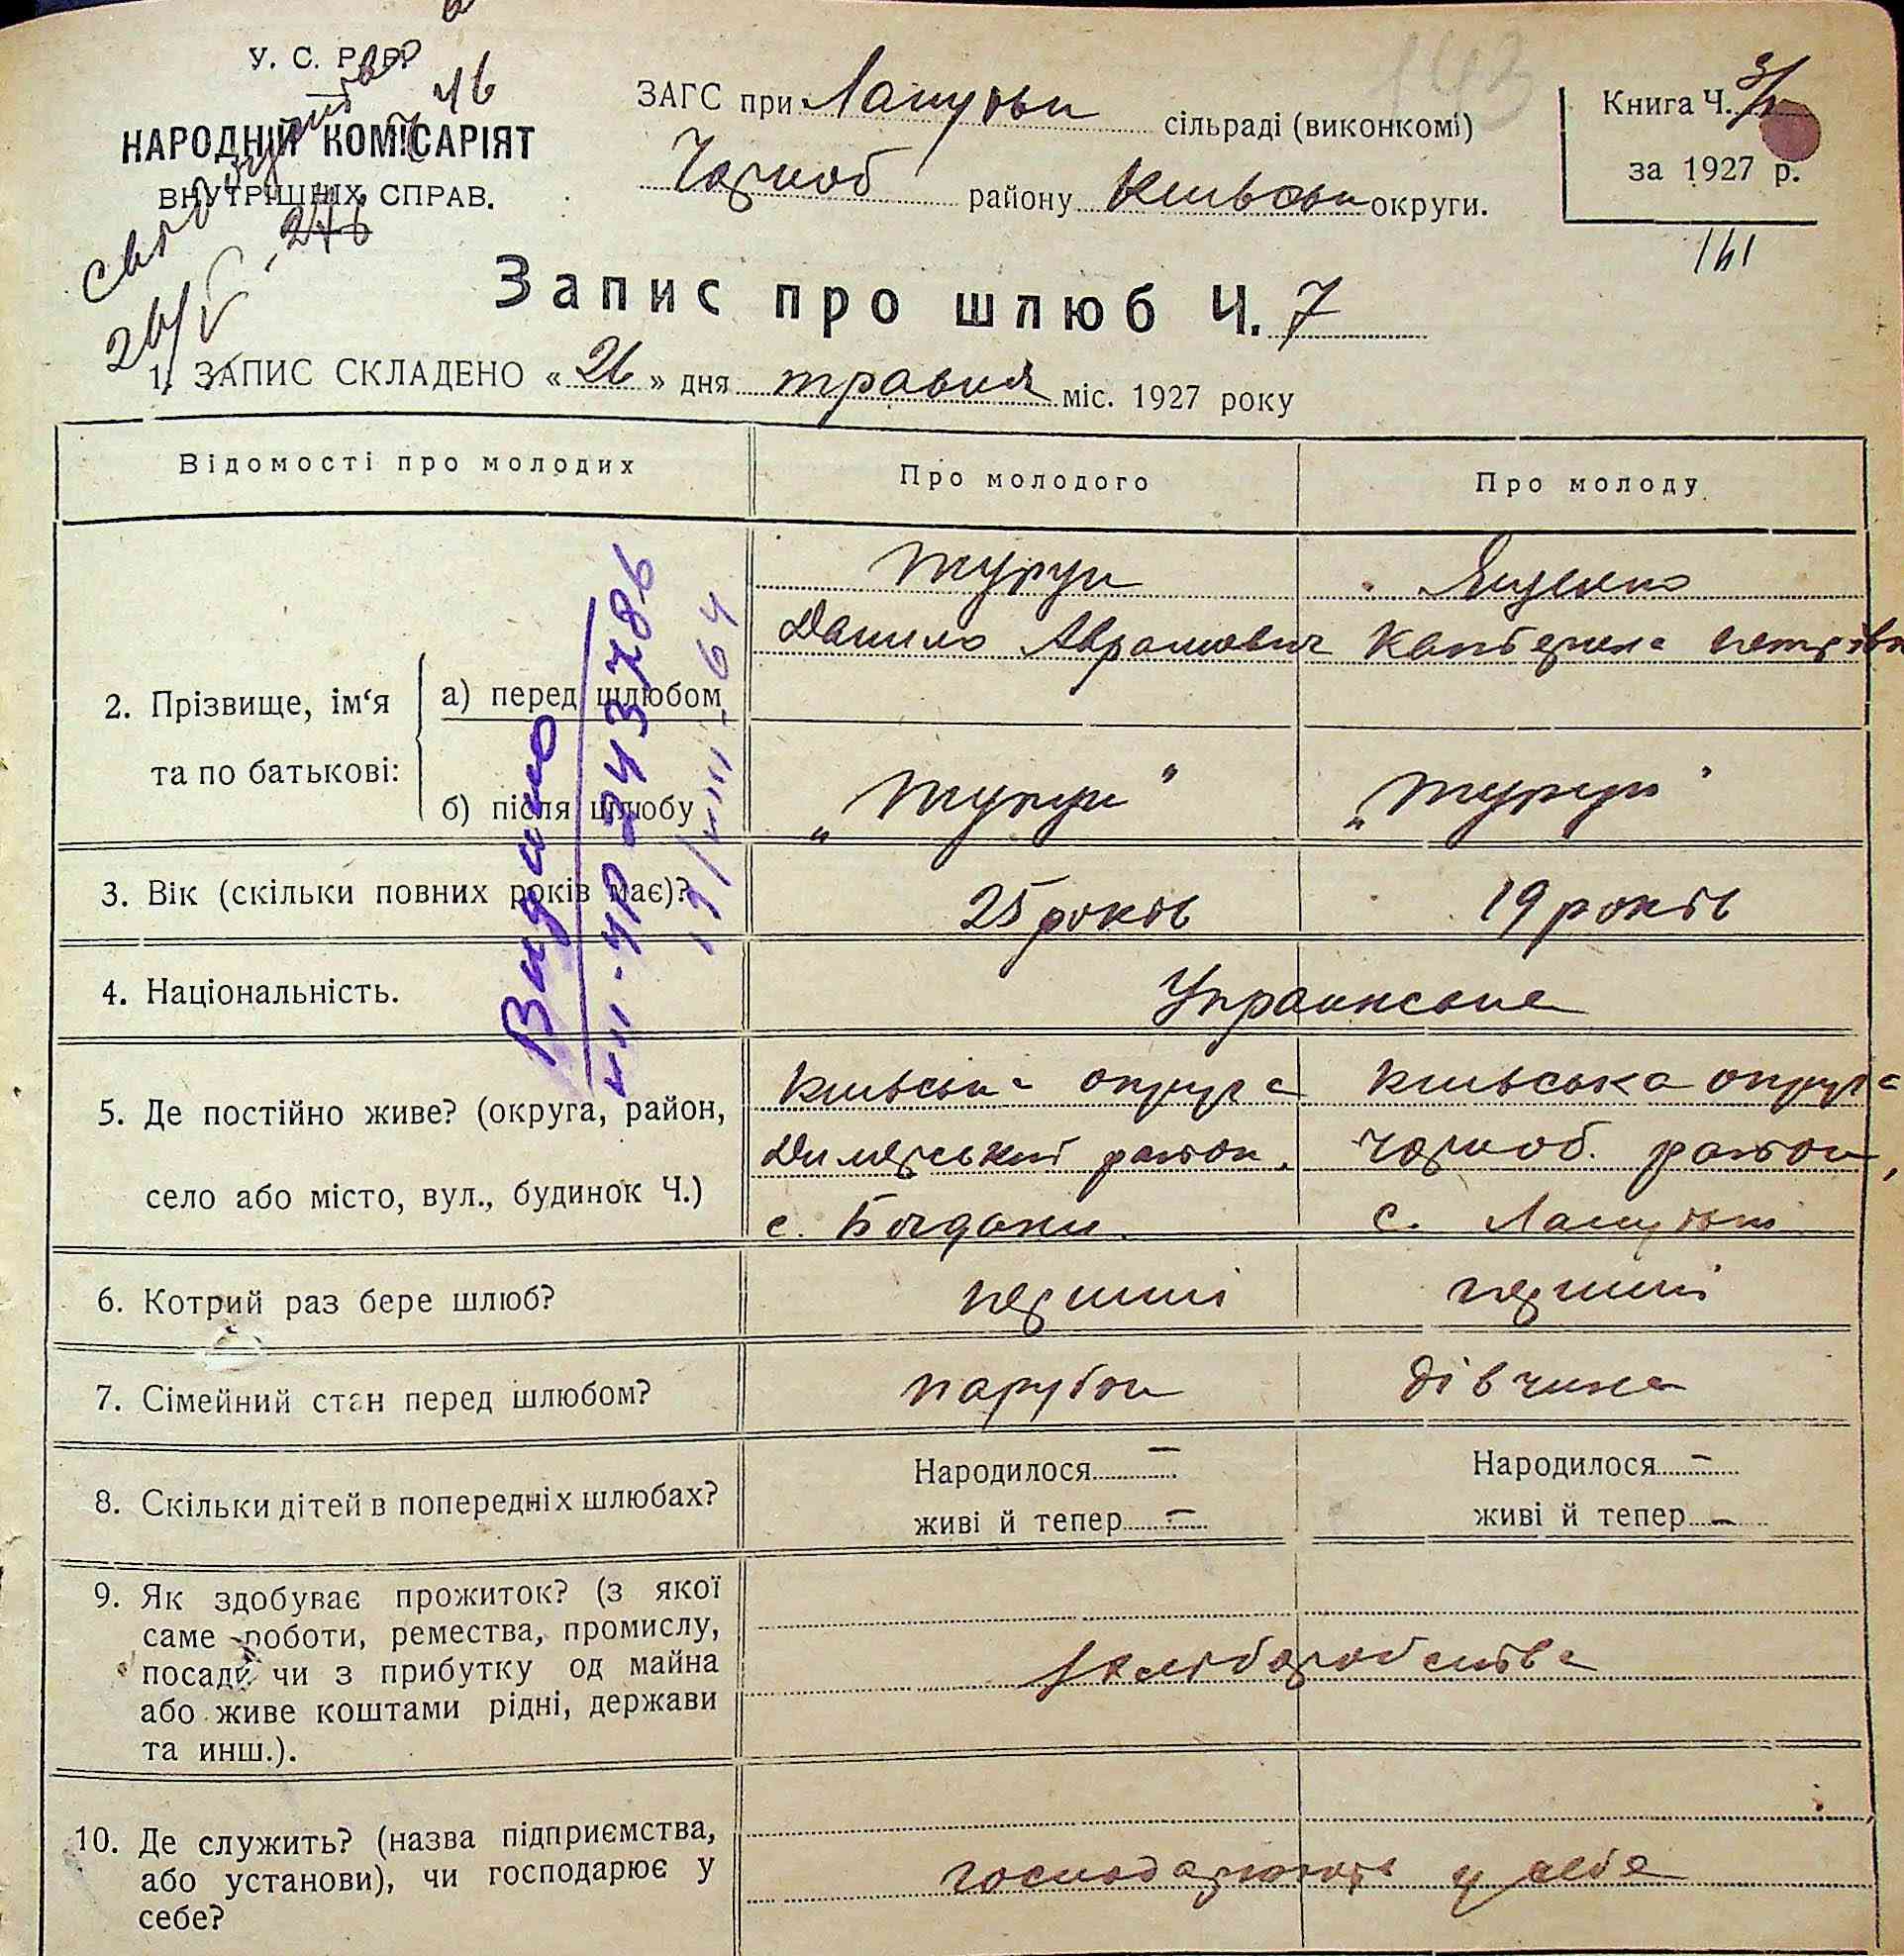 У. С. Р. Р.
НАРОДНІЙ КОМІСАРІЯТ
ВНУТРІШНІХ СПРАВ.
276
26/V
ЗАГС при сільраді (виконкомі)
Чорноб району Київськ округи.
143
Книга Ч.
за 1927 р.
141
Запис про шлюб Ч. 7
1. ЗАПИС СКЛАДЕНО « 26 » дня травня міс. 1927 року
Відомості про молодих Про молодого Про молоду
2. Прізвище, ім‘я та по батькові:
а) перед шлюбом
Данило Аврамович
Ященко
Катерина Петрівн
б) після шлюбу
3. Вік (скільки повних років має)? 25 років 19 років
4. Національність. Украинська
5. Де постійно живе? (округа, район,
село або місто, вул., будинок Ч.)
Київська округа
Димерський район.
с. Богдани.
Київська округа
Чорноб. район,
с.
6. Котрий раз бере шлюб? перший перший
7. Сімейний стан перед шлюбом? парубок дівчина
8. Скільки дітей в попередніх шлюбах?
Народилося –
живі й тепер –
Народилося –
живі й тепер –
9. Як здобуває прожиток? (з якої
саме роботи, ремества, промислу,
посади чи з прибутку од майна
або живе коштами рідні, держави
та инш.).
хліборобства
10. Де служить? (назва підприємства,
або установи), чи господарює у
себе?
господарюють у себе
Видано
-УР 243786
64